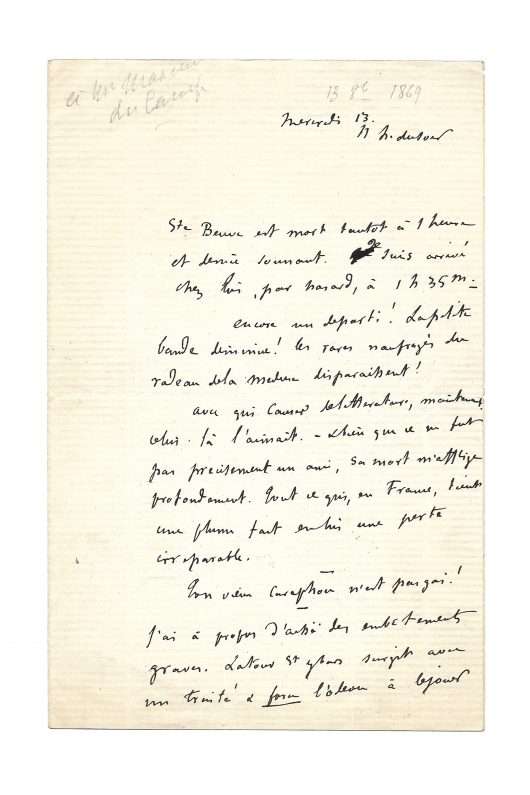 et un Maxime
du Camp
13 8bre 1869
Mercredi 13.
11 h. du soir
Ste Beuve est mort tantot à 1 heure
et demie sonnant. Je suis arrivé
chez lui, par hasard, à 1 h 35 m. –
encore un de parti! La petite
bande diminue! les rares naufragés du
radeau de la meduse disparaissent!
avec qui Causer de litterature, maintenant,
celui-là l'aimait. – & bien que ce ne fut
pas precisement un ami, sa mort m'afflige
profondement. Tout ce qui, en France, tient
une plume fait en lui une perte
irreparable.
Ton vieux n'est pas gai!
J'ai à propos d'aïssé des embêtements
graves. Latour St ybars surgit avec
un traité & force l'odeon à le jouer